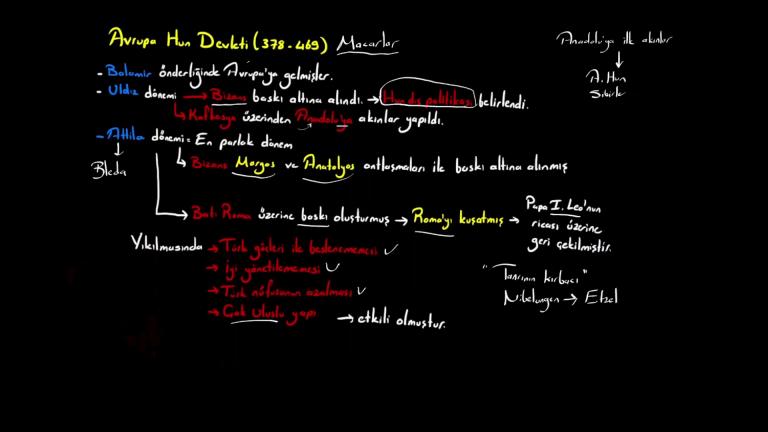 Avrupa Hun Devleti (378-469) Macarlar
- Balamir önderliğinde Avrupa'ya gelmişler.
- Uldız dönemi → Bizans baskı altına alındı. → Hun dış politikası belirlendi.
↳ Kafkasya üzerinden Anadolu'ya akınlar yapıldı.
- Attila dönemi = En parlak dönem
↓
Bleda
↳ Bizans Margos ve Anatolyos antlaşmaları ile baskı altına alınmış
→ Batı Roma üzerine baskı oluşturmuş → Roma'yı kuşatmış →
Papa I. Leo'nun
ricası üzerine
geri çekilmiştir.
Yıkılmasında → Türk göçleri ile beslenememesi ✓
→ İyi yönetilememesi ✓
→ Türk nüfusunun azalması ✓
→ Çok uluslu yapı → etkili olmuştur.
"Tanrının kırbacı"
Nibelungen → Etzel
Anadolu'ya ilk akınlar
↓
A. Hun
Sibirle